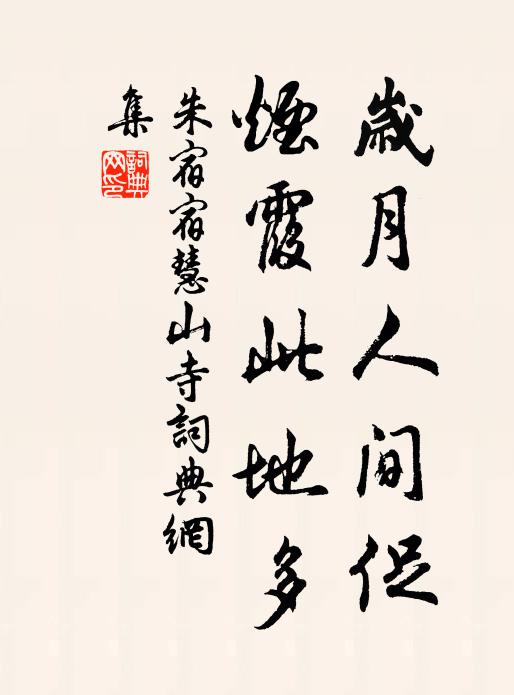 歲月人间促
煙霞此地多
朱宿宿慧山寺詞典網
集
詞典
网印